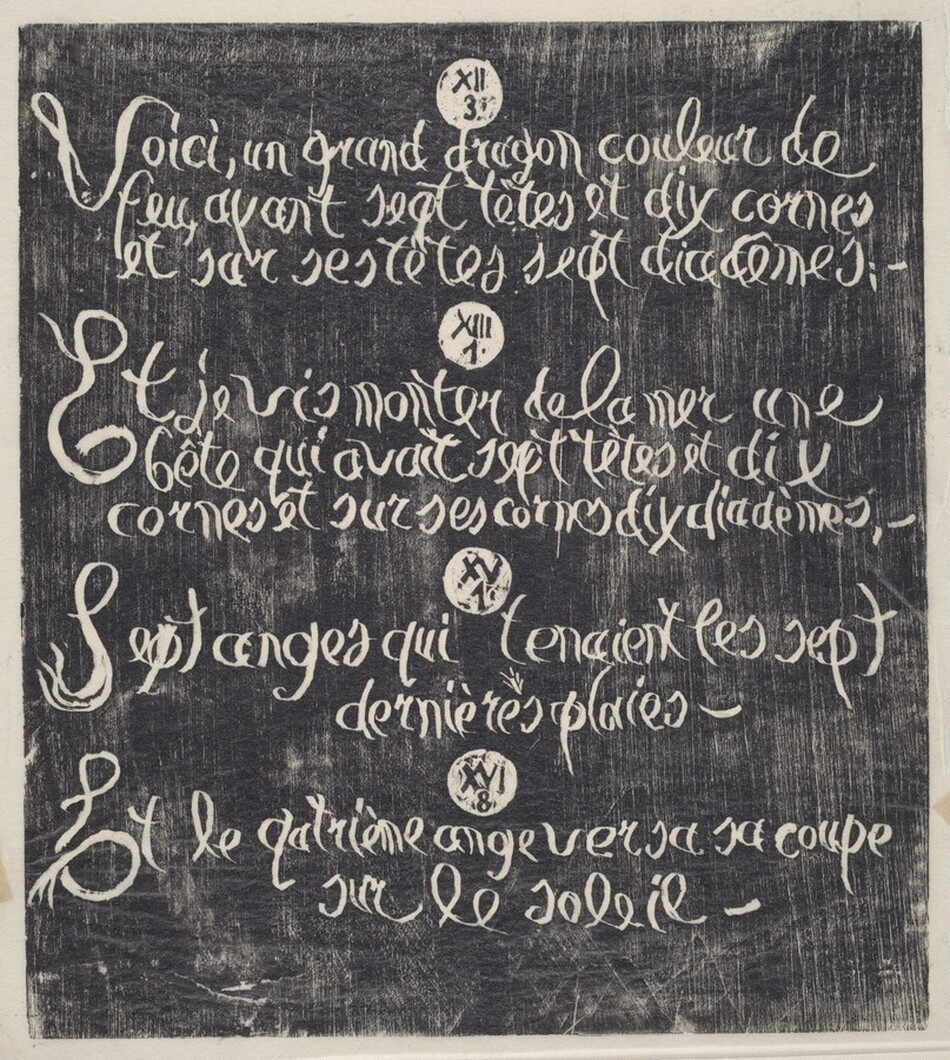 XII
3.
Voici, un grand dragon couleur de
feu, ayant sept têtes et dix cornes
et sur ses têtes sept diadèmes; -
XIII
1.
Et je vis monter de la mer une
bête qui avait sept têtes et dix
cornes et sur ses cornes dix diadèmes, -
XV
1.
Sept anges qui tenaient les sept
dernières plaies -
XVI
8
Et le qatrième ange versa sa coupe
sur le soleil -